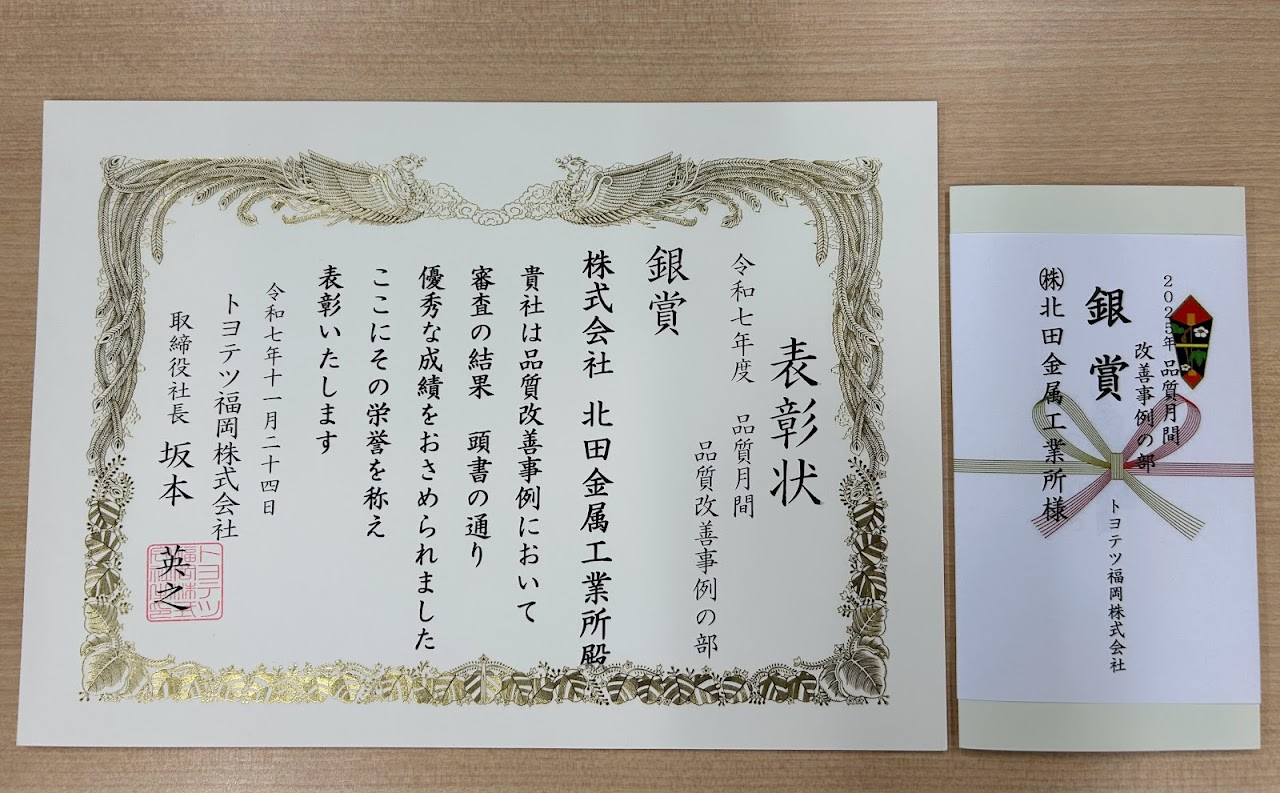 表彰状
令和七年度 品質月間
品質改善事例の部
銀賞
株式会社 北田金属工業所殿
貴社は品質改善事例において
審査の結果 頭書の通り
優秀な成績をおさめられました
ここにその栄誉を称え
表彰いたします
令和七年十一月二十四日
トヨテツ福岡株式会社
取締役社長 坂本 英之
2025年 品質月間
改善事例の部
銀賞
トヨテツ福岡株式会社
㈱北田金属工業所様